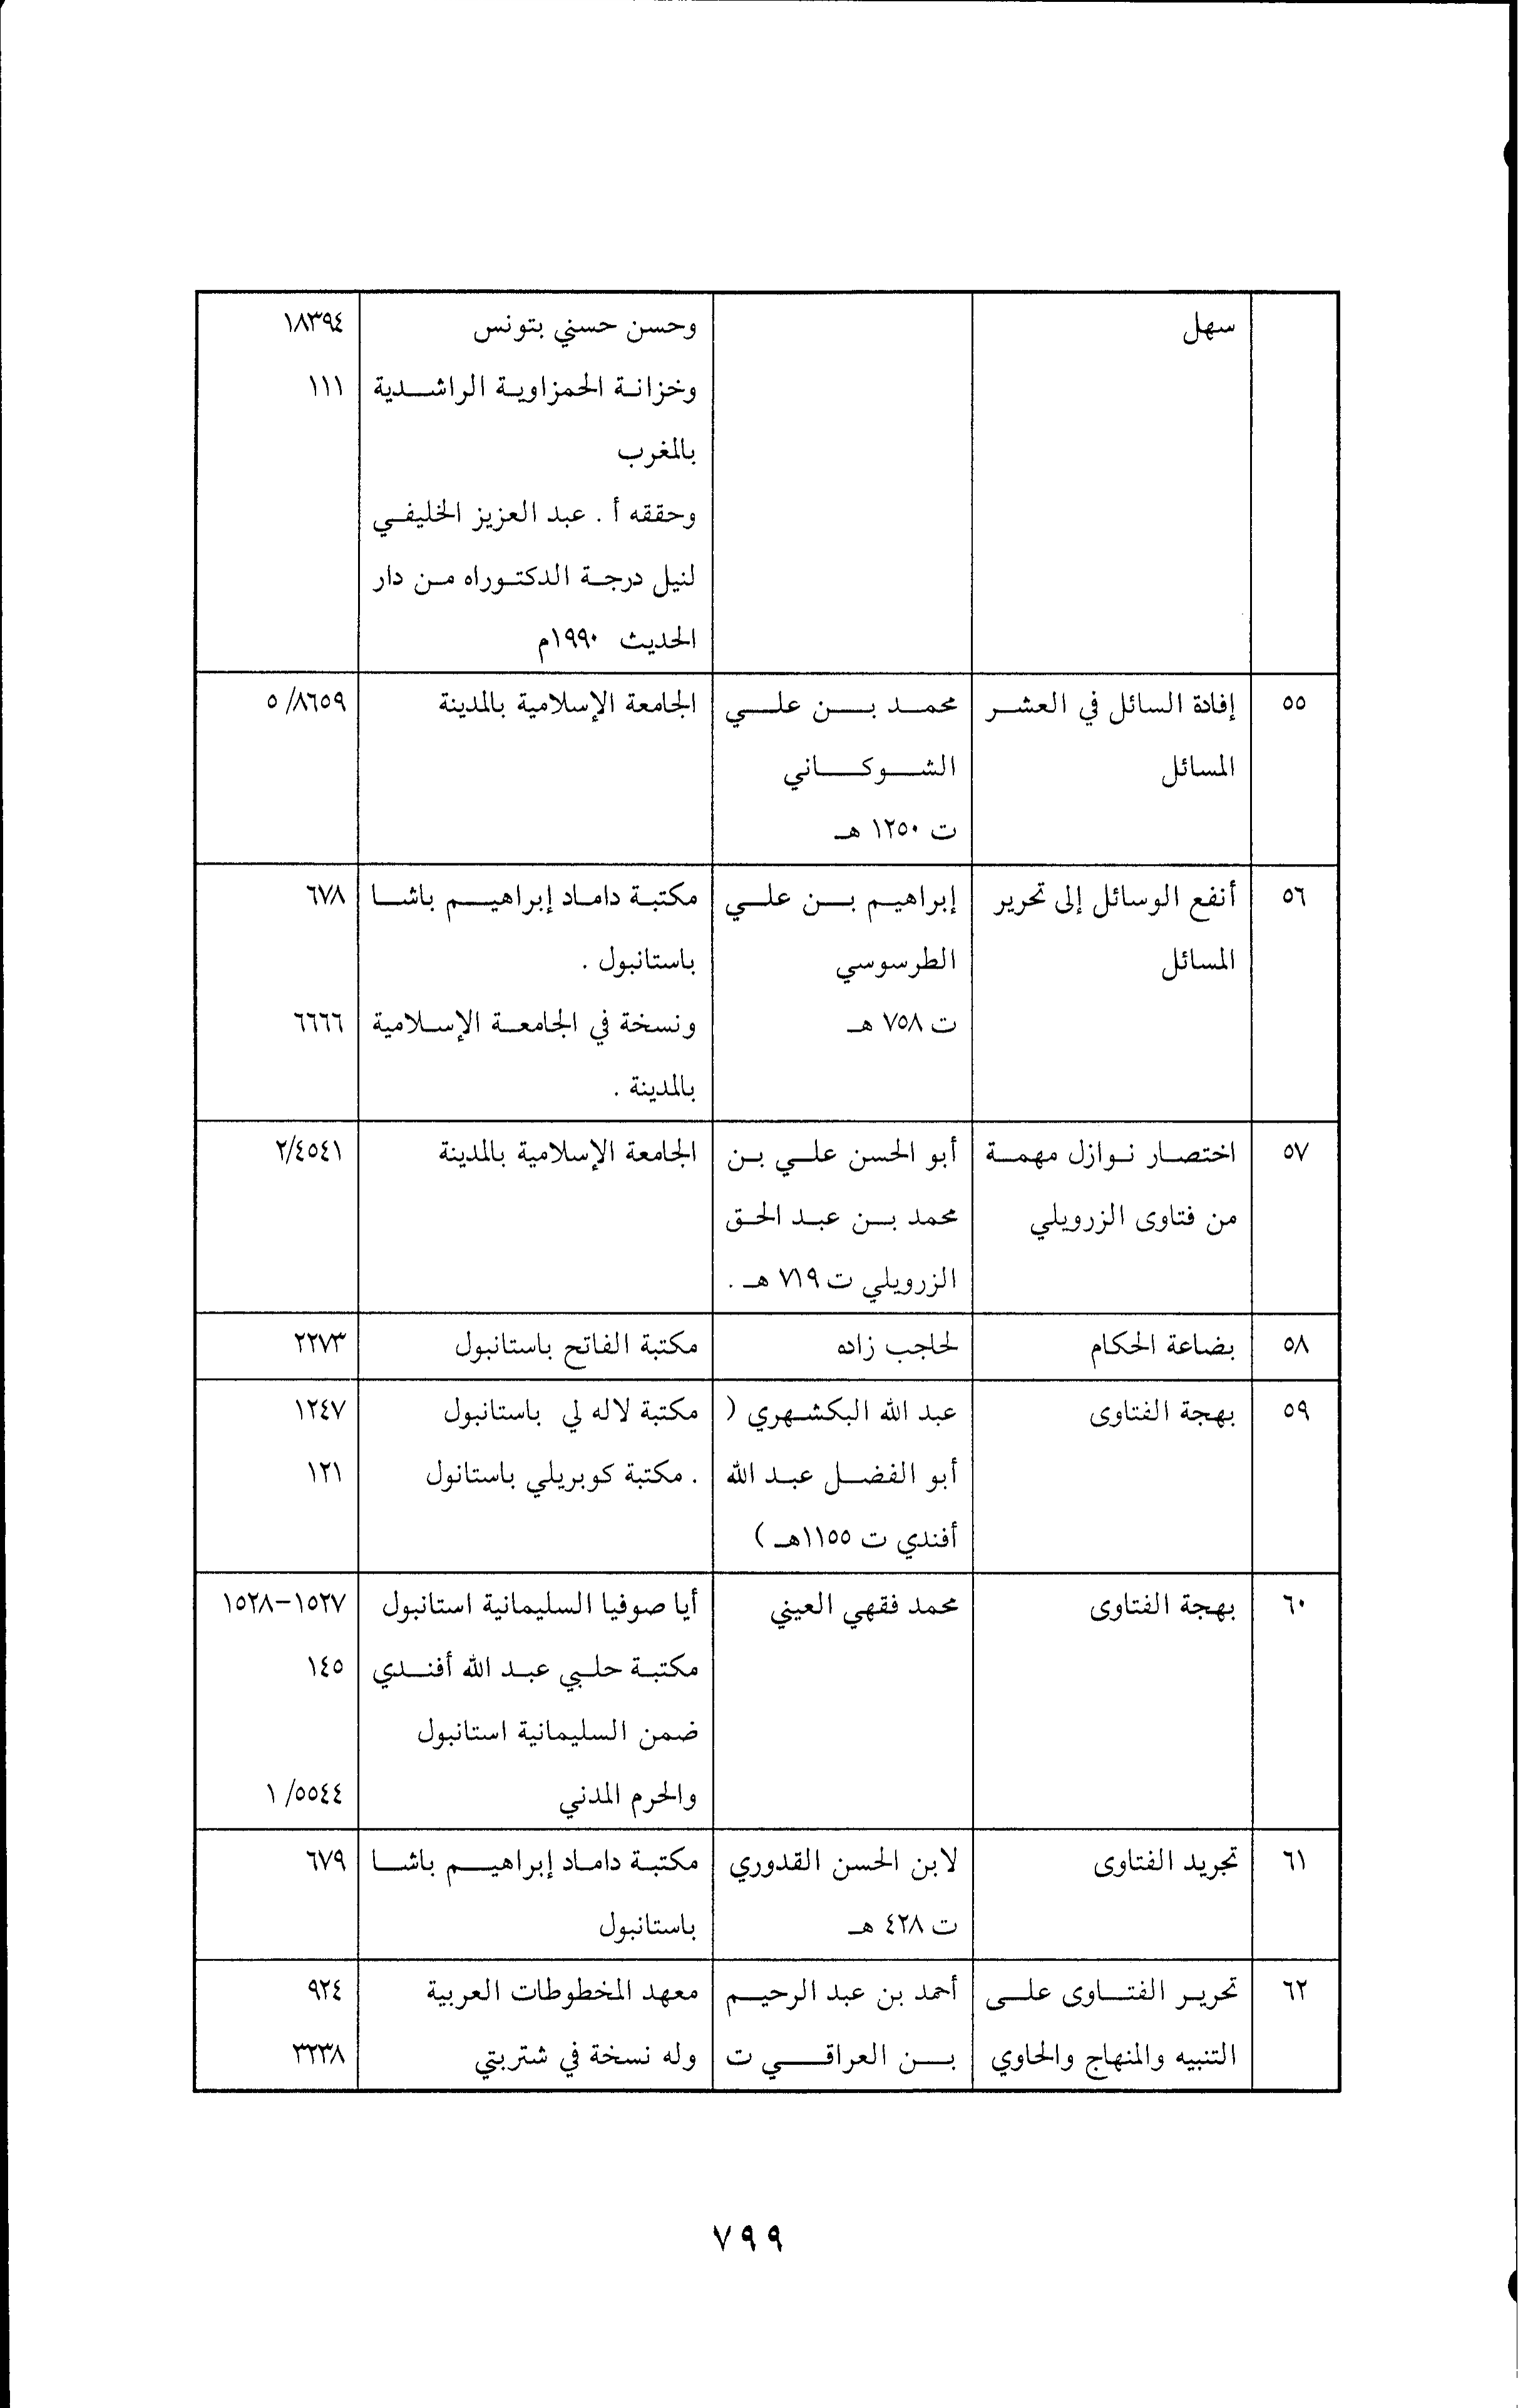 سهل
وحسن حسني بتونس
١٨٣٩٤
وخزانة الحمزاوية الراشدية
١١١
بالمغرب
وحققه أ . عبد العزيز الخليفي
لنيل درجة الدكتوراه من دار
الحديث ١٩٩٠م
٥٥
إفادة السائل في العشر
المسائل
محمد بن علي
الشوكاني
ت ١٢٥٠ هـ
الجامعة الإسلامية بالمدينة
٥/٨٦٥٩
٥٦
أنفع الوسائل إلى تحرير
المسائل
إبراهيم بن علي
الطرسوسي
ت ٧٥٨ هـ
مكتبة داماد إبراهيم باشا
باستانبول .
ونسخة في الجامعة الإسلامية
بالمدينة .
٦٧٨
٦٦٦٦
٥٧
اختصار نوازل مهمة
من فتاوى الزرويلي
أبو الحسن علي بن
محمد بن عبد الحق
الزرويلي ت ٧١٩ هـ .
الجامعة الإسلامية بالمدينة
٢/٤٥٤١
٥٨
بضاعة الحكام
لحاجب زاده
مكتبة الفاتح باستانبول
٢٢٧٣
٥٩
بهجة الفتاوى
عبد الله البكشهري (
أبو الفضل عبد الله
أفندي ت ١١٥٥هـ )
مكتبة لاله لي باستانبول
. مكتبة كوبريلي باستانول
١٢٤٧
١٢١
٦٠
بهجة الفتاوى
محمد فقهي العيني
أيا صوفيا السليمانية استانبول
مكتبة حلبي عبد الله أفندي
ضمن السليمانية استانبول
والحرم المدني
١٥٢٧-١٥٢٨
١٤٥
١/٥٥٤٤
٦١
تجريد الفتاوى
لابن الحسن القدوري
ت ٤٢٨ هـ
مكتبة داماد إبراهيم باشا
باستانبول
٦٧٩
٦٢
تحرير الفتاوى على
التنبيه والمنهاج والحاوي
أحمد بن عبد الرحيم
بن العراقي ت
معهد المخطوطات العربية
وله نسخة في شتربتي
٩٢٤
٣٢٣٨
٧٩٩